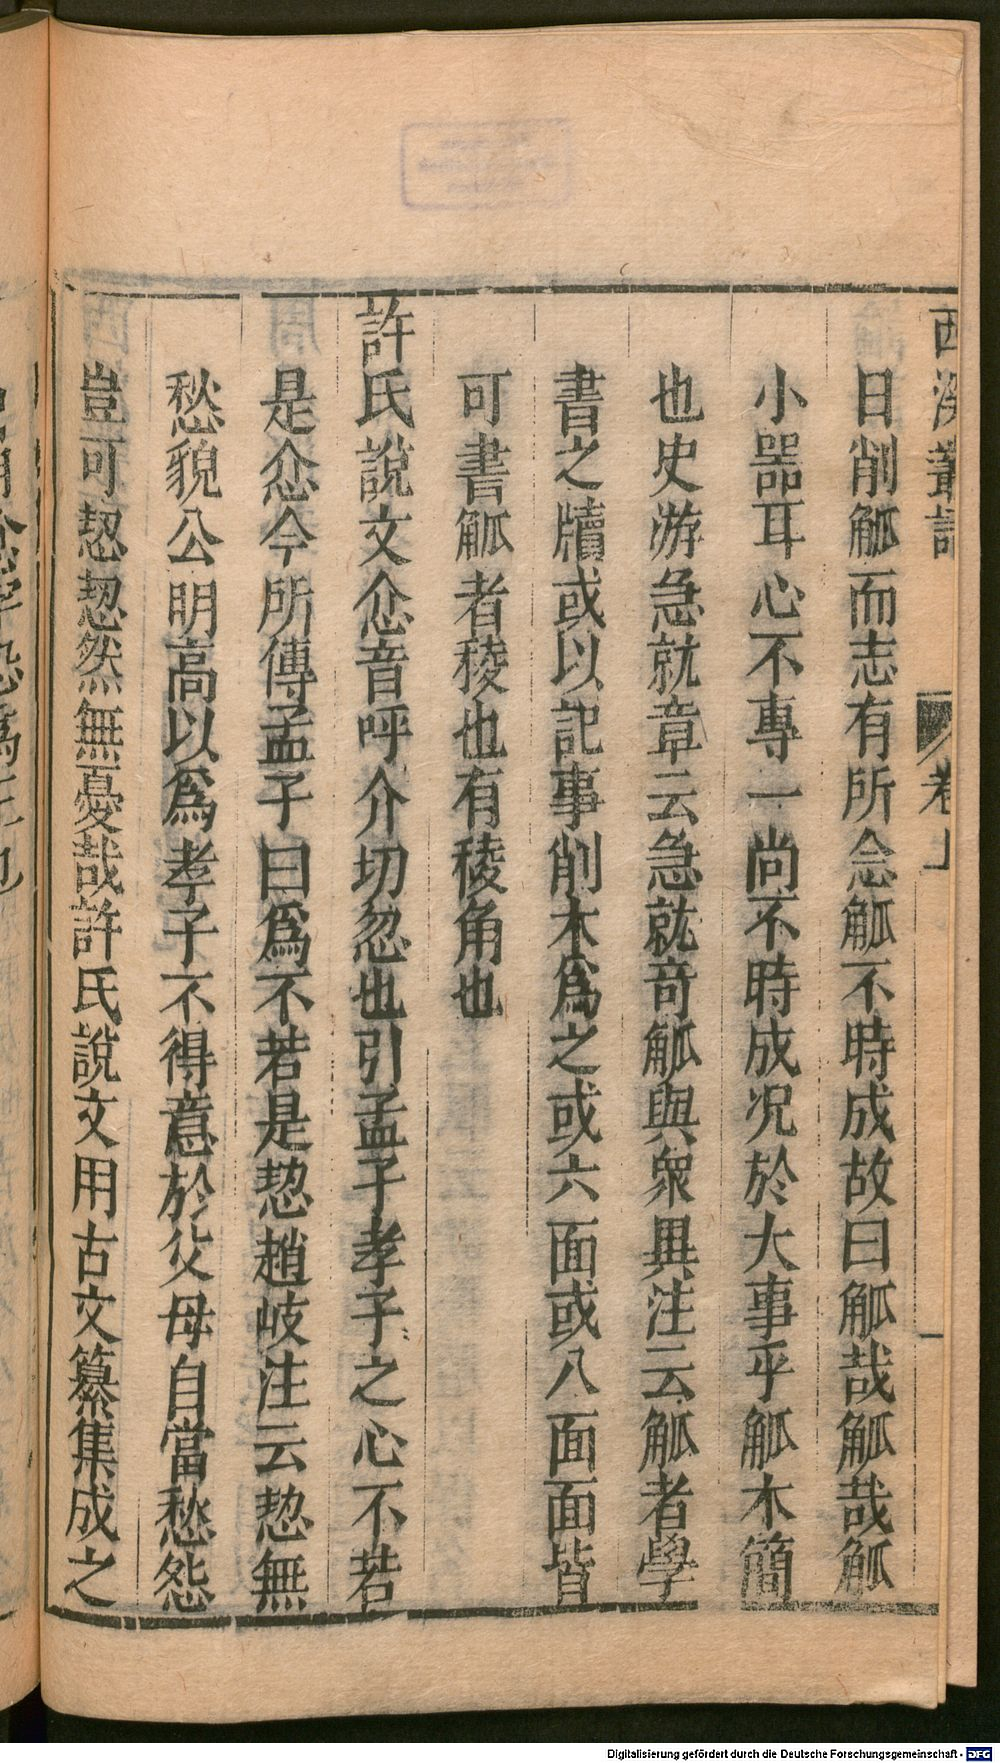 西溪叢語 卷上
日削觚而志有所念觚不時成故曰觚哉觚哉觚
小器耳心不專一尚不時成况於大事乎觚木簡
也史游急就章云急就奇觚與衆異注云觚者學
書之牘或以記事削木爲之或六面或八面面皆
可書觚者稜也有稜角也
許氏說文忿音呼介切忽也引孟子孝子之心不若
是忿今所傳孟子曰爲不若是恝趙岐注云恝無
愁貌公明高以爲孝子不得意於父母自當愁怨
豈可恝恝然無憂哉許氏說文用古文纂集成之
Digitalisierung gefördert durch die Deutsche Forschungsgemeinschaft - DFG